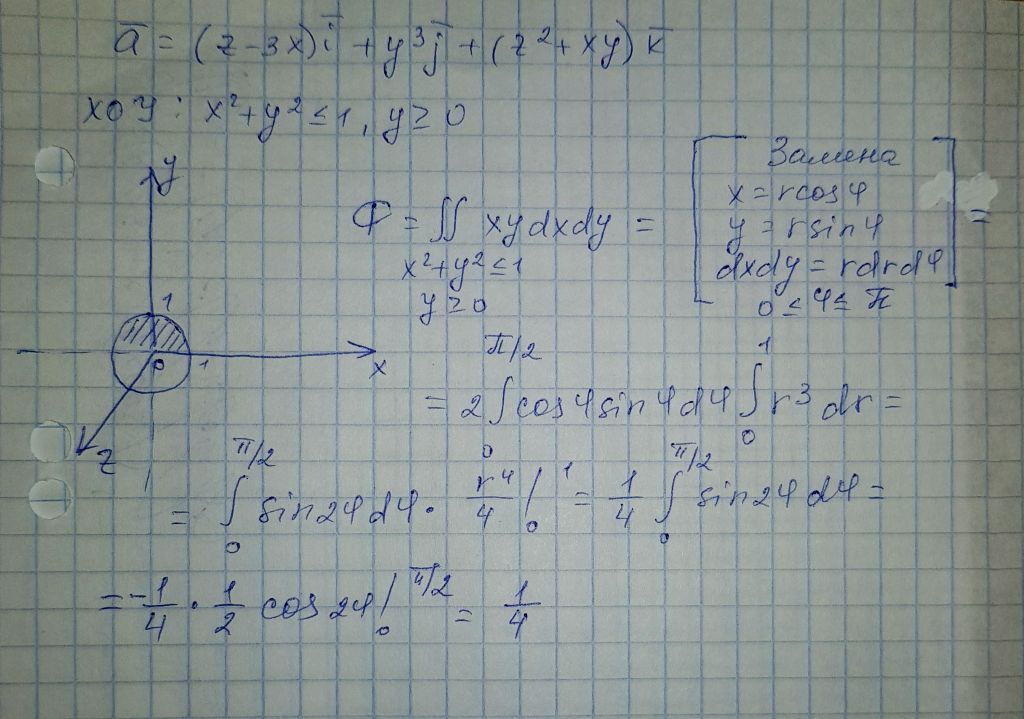 ā = (z-3x)ī + y³j̄ + (z²+xy)k̄
xoy: x²+y² ≤ 1, y ≥ 0
y
1
0
1
x
z
Ф = ∬ xydxdy =
x²+y² ≤ 1
y ≥ 0
Замена
x = rcosφ
y = rsinφ
dxdy = rdrdφ
0 ≤ φ ≤ π
=
= 2 ∫₀^(π/2) cosφsinφdφ ∫₀^1 r³dr =
= ∫₀^(π/2) sin2φdφ · r⁴/4 |₀^1 = 1/4 ∫₀^(π/2) sin2φdφ =
= -1/4 · 1/2 cos2φ |₀^(π/2) = 1/4